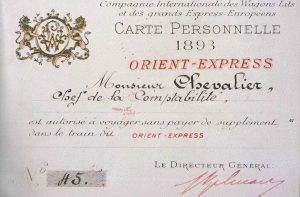 Compagnie Internationale des Wagons Lits
et des grands Express-Européens
CARTE PERSONNELLE
1893
ORIENT-EXPRESS
Monsieur Chevalier,
Chef de la Comptabilité,
est autorisé à voyager sans payer de supplément
dans le train dit ORIENT-EXPRESS
LE DIRECTEUR GÉNÉRAL:
No 45.